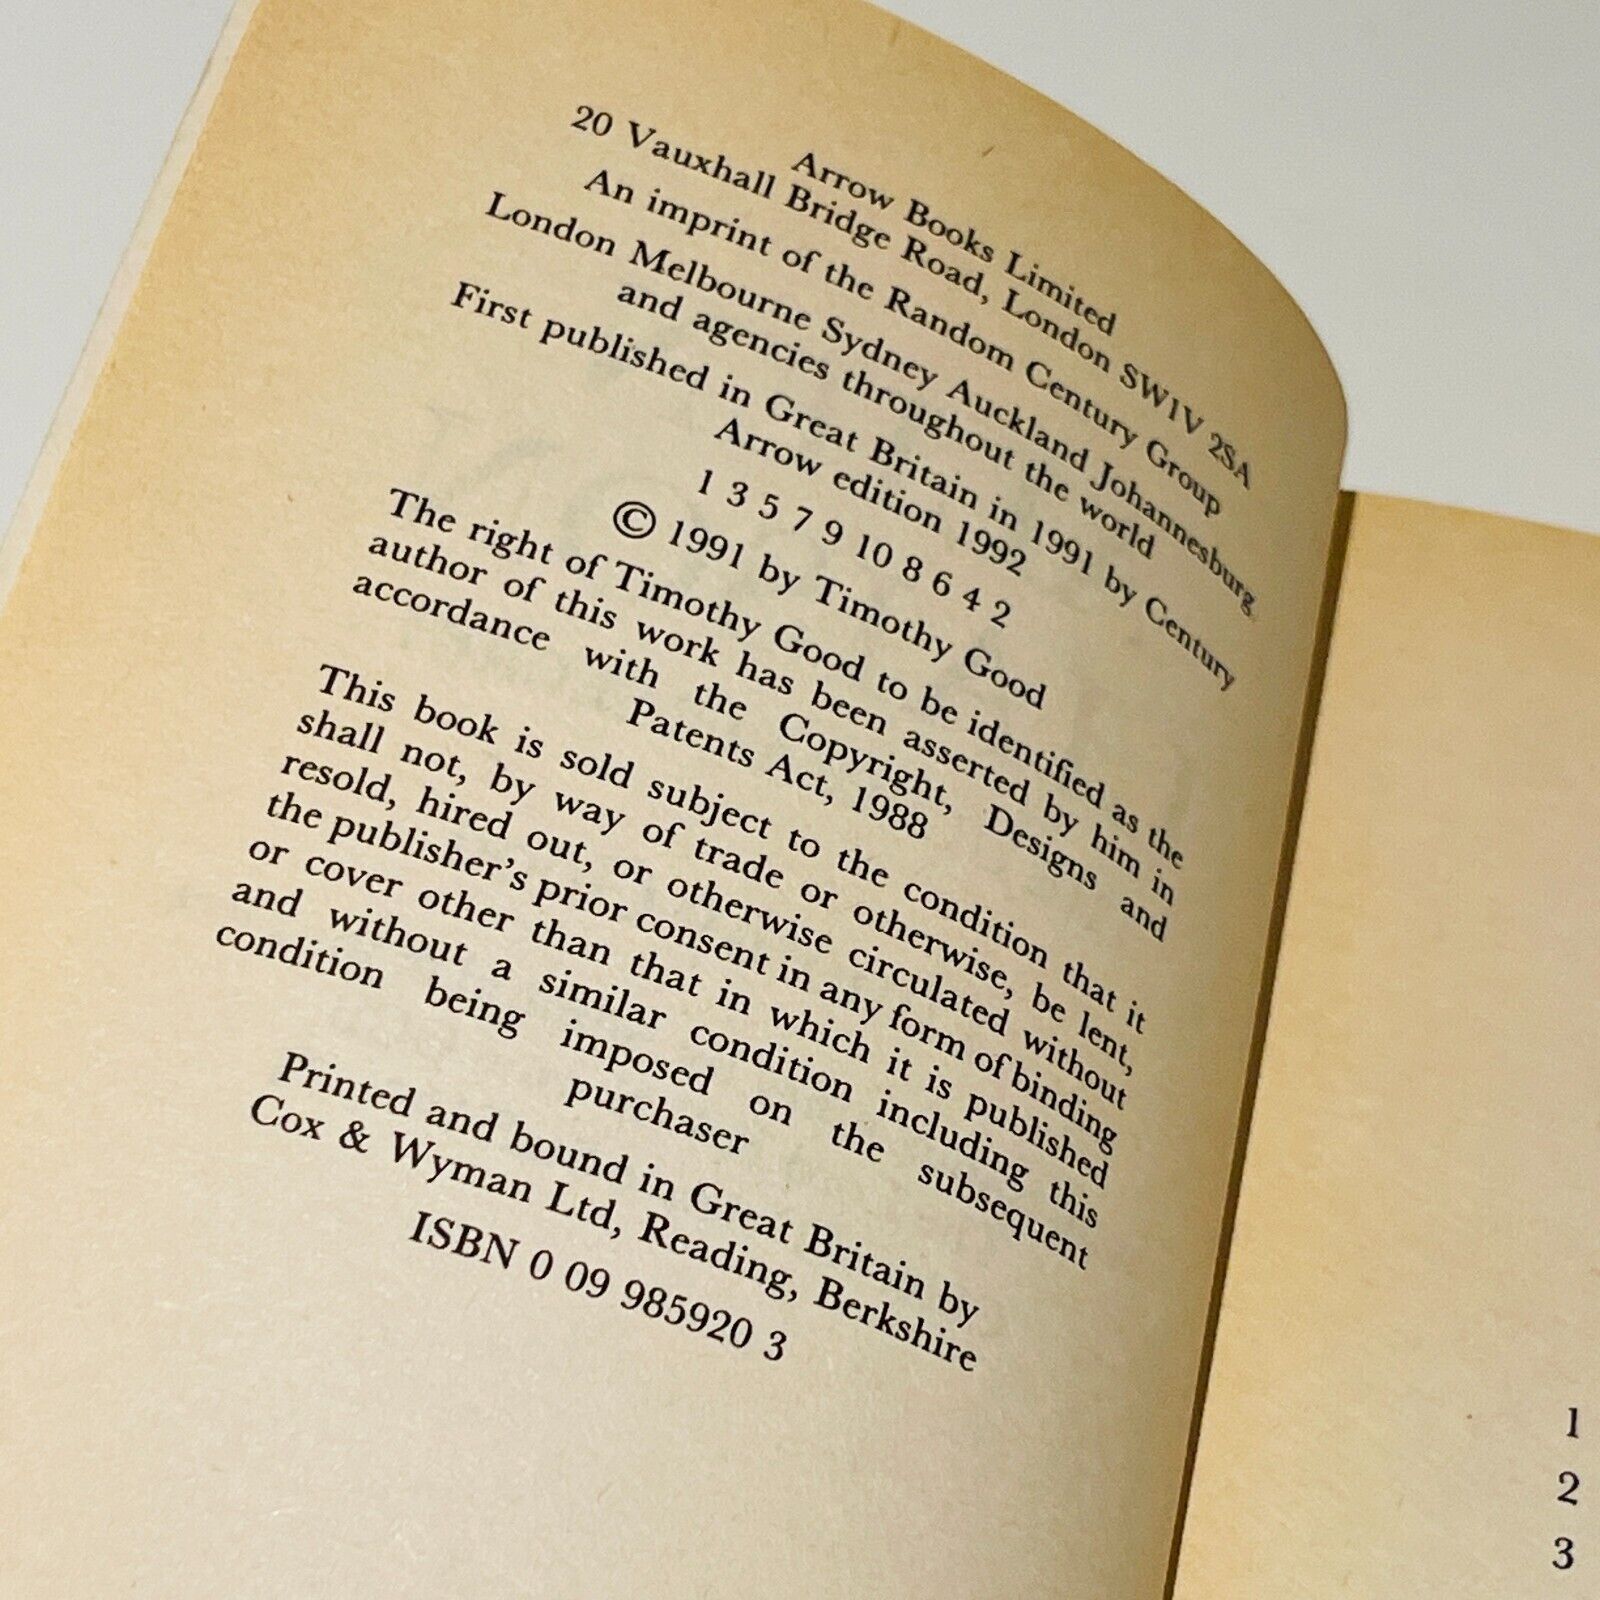 Arrow Books Limited
20 Vauxhall Bridge Road, London SW1V 2SA
An imprint of the Random Century Group
London Melbourne Sydney Auckland Johannesburg
and agencies throughout the world
First published in Great Britain in 1991 by Century
Arrow edition 1992
1 3 5 7 9 10 8 6 4 2
© 1991 by Timothy Good
The right of Timothy Good to be identified as the
author of this work has been asserted by him in
accordance with the Copyright, Designs and
Patents Act, 1988
This book is sold subject to the condition that it
shall not, by way of trade or otherwise, be lent,
resold, hired out, or otherwise circulated without
the publisher's prior consent in any form of binding
or cover other than that in which it is published
and without a similar condition including this
condition being imposed on the subsequent
purchaser
Printed and bound in Great Britain by
Cox & Wyman Ltd, Reading, Berkshire
ISBN 0 09 985920 3
1
2
3